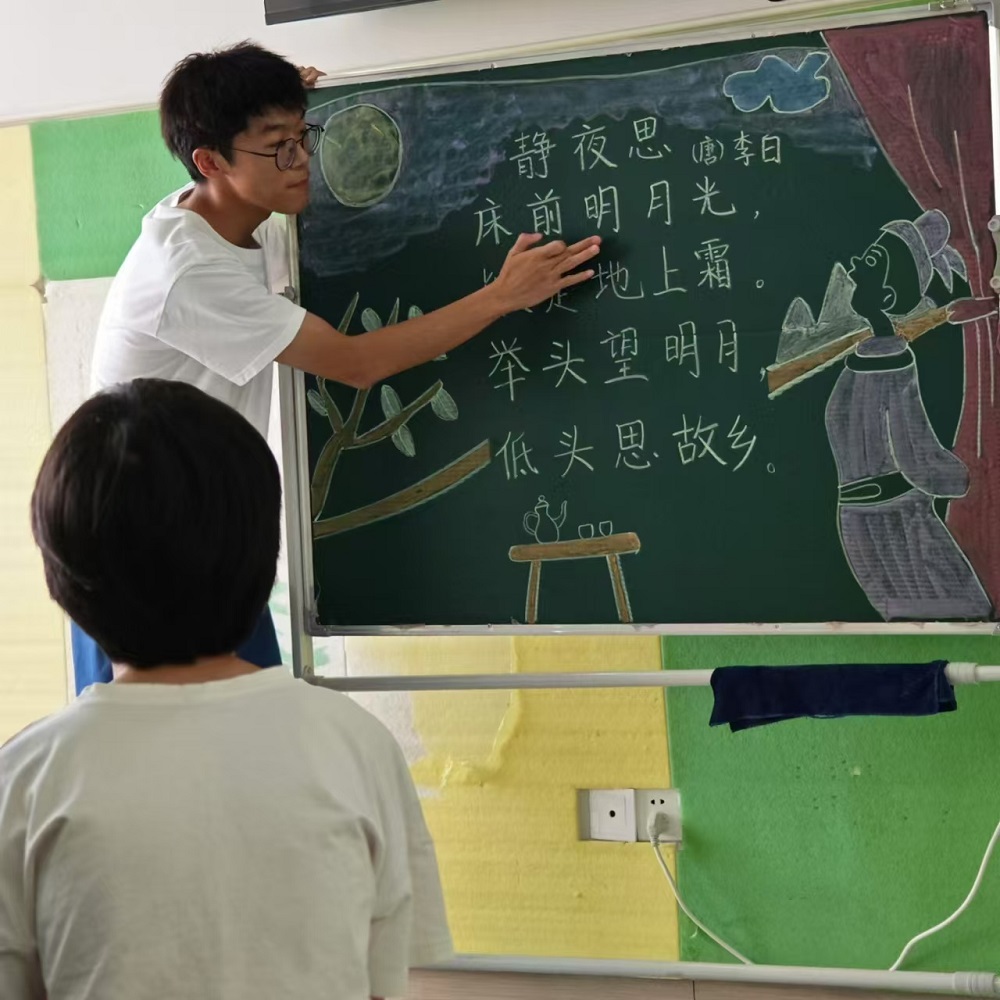 静夜思 (唐)李白
床前明月光，
是地上霜。
举头望明月
低头思故乡。